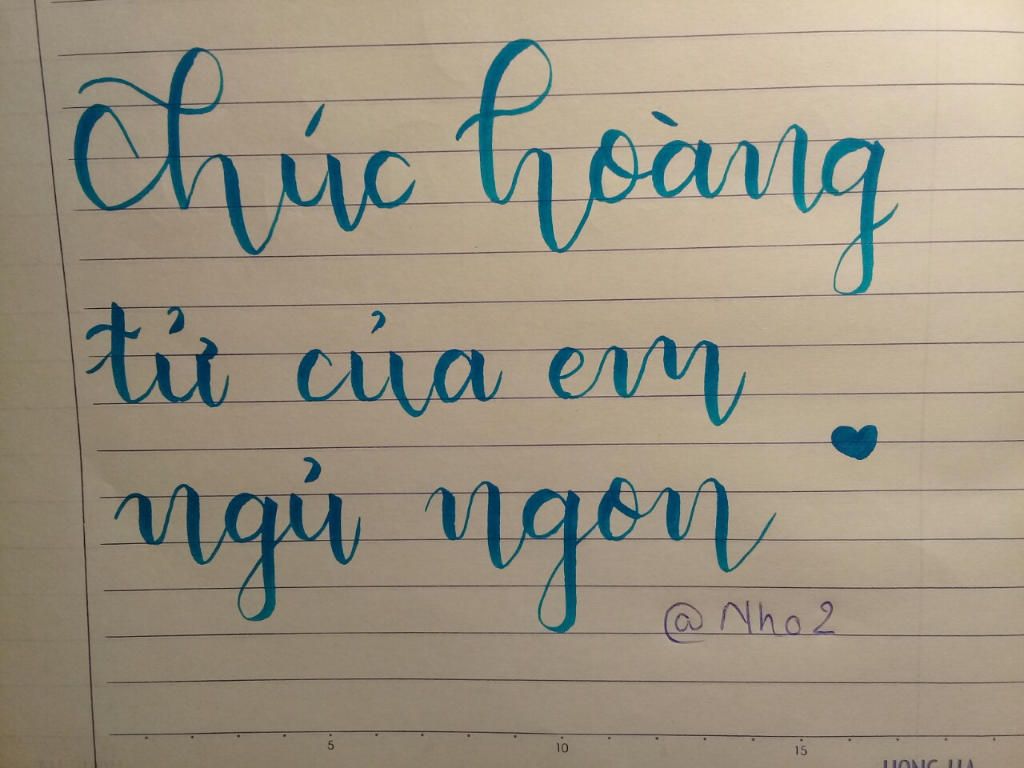 Chúc hoàng
tử của em
ngủ ngon
@Nho2
5 10 15
HONG HA